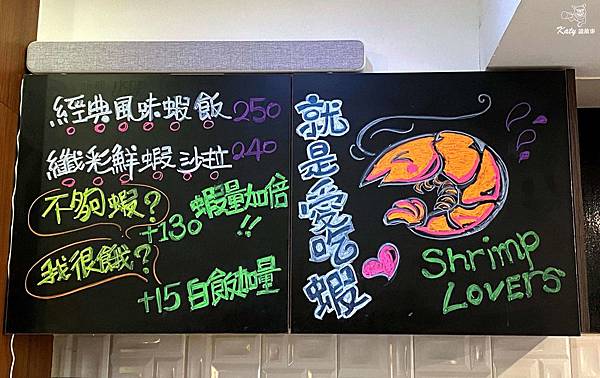 經典風味蝦飯 250
纖彩鮮蝦沙拉 240
不夠蝦？
+130 蝦量加倍!!
我很餓？
+15 白飯加量
就是愛吃蝦
Shrimp
LOVERS
Katy 這廂事